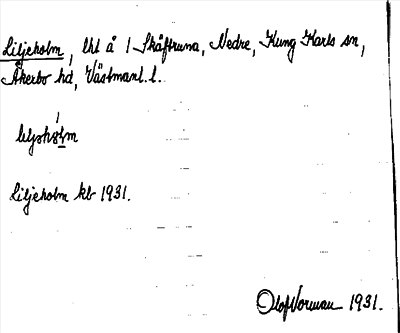 Liljeholm, lht å 1 Skåftruna, Nedre, Kung Karls sn,
Åkerbo hd, Västmanl. l.
Liljeholm kb 1931.
Olof Norman 1931.